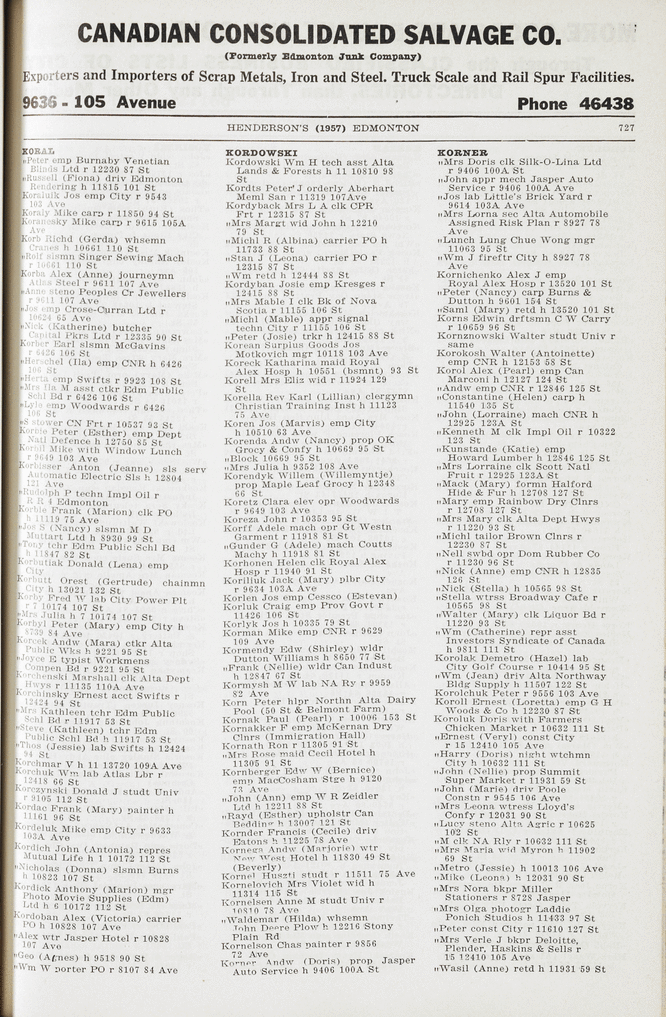 CANADIAN CONSOLIDATED SALVAGE CO.
(Formerly Edmonton Junk Company)
Exporters and Importers of Scrap Metals, Iron and Steel. Truck Scale and Rail Spur Facilities.
9636 - 105 Avenue Phone 46438
HENDERSON'S (1957) EDMONTON 727
KORAL
"Peter emp Burnaby Venetian
Blinds Ltd r 12230 87 St
"Russell (Fiona) driv Edmonton
Rendering h 11815 101 St
Koraluik Jos emp City r 9543
103 Ave
Koraly Mike carp r 11850 94 St
Koranosky Mike carp r 9615 105A
Ave
Korb Richd (Gerda) whsemn
Cranes h 10661 110 St
"Rolf slsmn Singer Sewing Mach
r 10661 110 St
Korba Alex (Anne) journeymn
Atlas Steel r 9611 107 Ave
"Anne steno Peoples Cr Jewellers
r 9611 107 Ave
"Jos emp Crose-Curran Ltd r
10624 65 Ave
"Nick (Katherine) butcher
Capital Pkrs Ltd r 12335 90 St
Korber Earl slsmn McGavins
r 6426 106 St
"Herschel (Ila) emp CNR h 6426
106 St
"Herta emp Swifts r 9923 108 St
"Mrs Ila M asst ctkr Edm Public
Schl Bd r 6426 106 St
"Lyle emp Woodwards r 6426
106 St
"S stower CN Frt r 10537 93 St
Korble Peter (Esther) emp Dept
Natl Defence h 12750 85 St
Mike with Window Lunch
r 9649 103 Ave
Korbisser Anton (Jeanne) sls serv
Automatic Electric Sls h 12804
121 Ave
"Rudolph P techn Impl Oil r
R R 4 Edmonton
Korbie Frank (Marion) clk PO
h 11119 75 Ave
"Jos S (Nancy) slsmn M D
Muttart Ltd h 8930 99 St
"Tony tchr Edm Public Schl Bd
h 11847 82 St
Korbutiak Donald (Lena) emp
City
Korbutt Orest (Gertrude) chainmn
City h 13021 132 St
Korby Fred W lab City Power Plt
r 7 10174 107 St
"Mrs Julia h 7 10174 107 St
Korbyl Peter (Mary) emp City h
8739 84 Ave
Korcek Andw (Mara) ctkr Alta
Public Wks h 9221 95 St
"Joyce E typist Workmens
Compen Bd r 9221 95 St
Korchenski Marshall clk Alta Dept
Hwys r 11135 110A Ave
Korchinsky Ernest acct Swifts r
12424 94 St
"Mrs Kathleen tchr Edm Public
Schl Bd r 11917 53 St
"Steve (Kathleen) tchr Edm
Public Schl Bd h 11917 53 St
"Thos (Jessie) lab Swifts h 12424
94 St
Korchmar V h 11 13720 109A Ave
Korchuk Wm lab Atlas Lbr r
12418 66 St
Korczynski Donald J studt Univ
r 9105 112 St
Kordac Frank (Mary) painter h
11161 96 St
Kordeluk Mike emp City r 9633
103A Ave
Kordich John (Antonia) repres
Mutual Life h 1 10172 112 St
"Nicholas (Donna) slsmn Burns
h 10823 107 St
Kordick Anthony (Marion) mgr
Photo Movie Supplies (Edm)
Ltd h 6 10172 112 St
Kordoban Alex (Victoria) carrier
PO h 10828 107 Ave
"Alex wtr Jasper Hotel r 10828
107 Ave
"Geo (Agnes) h 9518 90 St
"Wm W porter PO r 8107 84 Ave
KORDOWSKI
Kordowski Wm H tech asst Alta
Lands & Forests h 11 10810 98
St
Kordts Peter J orderly Aberhart
Meml San r 11319 107Ave
Kordyback Mrs L A clk CPR
Frt r 12315 87 St
"Mrs Margt wid John h 12210
79 St
"Michl R (Albina) carrier PO h
11733 88 St
"Stan J (Leona) carrier PO r
12315 87 St
"Wm retd h 12444 88 St
Kordyban Josie emp Kresges r
12415 88 St
"Mrs Mable I clk Bk of Nova
Scotia r 11155 106 St
"Michl (Mable) appr signal
techn City r 11155 106 St
"Peter (Josie) trkr h 12415 88 St
Korean Surplus Goods Jos
Motkovich mgr 10118 103 Ave
Koreck Katharina maid Royal
Alex Hosp h 10551 (bsmnt) 93 St
Korell Mrs Eliz wid r 11924 129
St
Korella Rev Karl (Lillian) clergymn
Christian Training Inst h 11123
75 Ave
Koren Jos (Marvis) emp City
h 10510 63 Ave
Korenda Andw (Nancy) prop OK
Grocy & Confy h 10669 95 St
"Block 10669 95 St
"Mrs Julia h 9352 108 Ave
Korendyk Willem (Willemyntje)
prop Maple Leaf Grocy h 12348
66 St
Koretz Clara elev opr Woodwards
r 9649 103 Ave
Koreza John r 10353 95 St
Korff Adele mach opr Gt Westn
Garment r 11918 81 St
"Gunder G (Adele) mach Coutts
Machy h 11918 81 St
Korhonen Helen clk Royal Alex
Hosp r 11940 91 St
Koriliuk Jack (Mary) plbr City
r 9634 103A Ave
Korlen Jos emp Cessco (Estevan)
Korluk Craig emp Prov Govt r
11426 106 St
Korlyk Jos h 10335 79 St
Korman Mike emp CNR r 9629
109 Ave
Kormendy Edw (Shirley) wldr
Dutton Williams h 8650 77 St
"Frank (Nellie) wldr Can Indust
h 12847 67 St
Kormysh M W lab NA Ry r 9959
82 Ave
Korn Peter hlpr Northn Alta Dairy
Pool (50 St & Belmont Farm)
Kornak Paul (Pearl) r 10006 153 St
Kornakker F emp McKernan Dry
Clnrs (Immigration Hall)
Kornath Ron r 11305 91 St
"Mrs Rose maid Cecil Hotel h
11305 91 St
Kornberger Edw W (Bernice)
emp MacCosham Stge h 9120
73 Ave
"John (Ann) emp W R Zeidler
Ltd h 12211 88 St
"Rayd (Esther) upholstr Can
Bedding h 13007 121 St
Kornder Francis (Cecile) driv
Eatons h 11225 78 Ave
Kornega Andw (Marjorie) wtr
New West Hotel h 11830 49 St
(Beverly)
Kornel Huszti studt r 11511 75 Ave
Kornelovich Mrs Violet wid h
11314 115 St
Kornelsen Anne M studt Univ r
10810 78 Ave
"Waldemar (Hilda) whsemn
John Deere Plow h 12216 Stony
Plain Rd
Kornelson Chas painter r 9856
72 Ave
Korner Andw (Doris) prop Jasper
Auto Service h 9406 100A St
KORNER
"Mrs Doris clk Silk-O-Lina Ltd
r 9406 100A St
"John appr mech Jasper Auto
Service r 9406 100A Ave
"Jos lab Little's Brick Yard r
9614 103A Ave
"Mrs Lorna sec Alta Automobile
Assigned Risk Plan r 8927 78
Ave
"Lunch Lung Chue Wong mgr
11063 95 St
"Wm J fireftr City h 8927 78
Ave
Kornichenko Alex J emp
Royal Alex Hosp r 13520 101 St
"Peter (Nancy) carp Burns &
Dutton h 9601 154 St
"Saml (Mary) retd h 13520 101 St
Korns Edwin drftsmn C W Carry
r 10659 96 St
Kornznowski Walter studt Univ r
same
Korokosh Walter (Antoinette)
emp CNR h 12153 58 St
Korol Alex (Pearl) emp Can
Marconi h 12127 124 St
"Andw emp CNR r 12846 125 St
"Constantine (Helen) carp h
11540 135 St
"John (Lorraine) mach CNR h
12925 123A St
"Kenneth M clk Impl Oil r 10322
123 St
"Kunstande (Katie) emp
Howard Lumber h 12846 125 St
"Mrs Lorraine clk Scott Natl
Fruit r 12925 123A St
"Mack (Mary) formn Halford
Hide & Fur h 12708 127 St
"Mary emp Rainbow Dry Clnrs
r 12708 127 St
"Mrs Mary clk Alta Dept Hwys
r 11220 93 St
"Michl tailor Brown Clnrs r
12230 87 St
"Nell swbd opr Dom Rubber Co
r 11230 96 St
"Nick (Anne) emp CNR h 12835
126 St
"Nick (Stella) h 10565 98 St
"Stella wtrss Broadway Cafe r
10565 98 St
"Walter (Mary) clk Liquor Bd r
11220 93 St
"Wm (Catherine) repr asst
Investors Syndicate of Canada
h 9811 111 St
Korolak Demetro (Hazel) lab
City Golf Course r 10414 95 St
"Wm (Jean) driv Alta Northway
Bldg Supply h 11507 122 St
Korolchuk Peter r 9556 103 Ave
Koroll Ernest (Loretta) emp G H
Woods & Co h 12230 87 St
Koroluk Doris with Farmers
Chicken Market r 10632 111 St
"Ernest (Veryl) const City
r 15 12410 105 Ave
"Harry (Doris) night wtchmn
City h 10632 111 St
"John (Nellie) prop Summit
Super Market r 11931 59 St
"John (Marie) driv Poole
Constn r 9545 106 Ave
"Mrs Leona wtress Lloyd's
Confy r 12031 90 St
"Lucy steno Alta Agric r 10625
102 St
"M clk NA Rly r 10632 111 St
"Mrs Maria wid Myron h 11902
69 St
"Metro (Jessie) h 10013 106 Ave
"Mike (Leona) h 12031 90 St
"Mrs Nora bkpr Miller
Stationers r 8728 Jasper
"Mrs Olga photogr Laddie
Ponich Studios h 11433 97 St
"Peter const City r 11610 127 St
"Mrs Verle J bkpr Deloitte,
Plender, Haskins & Sells r
15 12410 105 Ave
"Wasil (Anne) retd h 11931 59 St